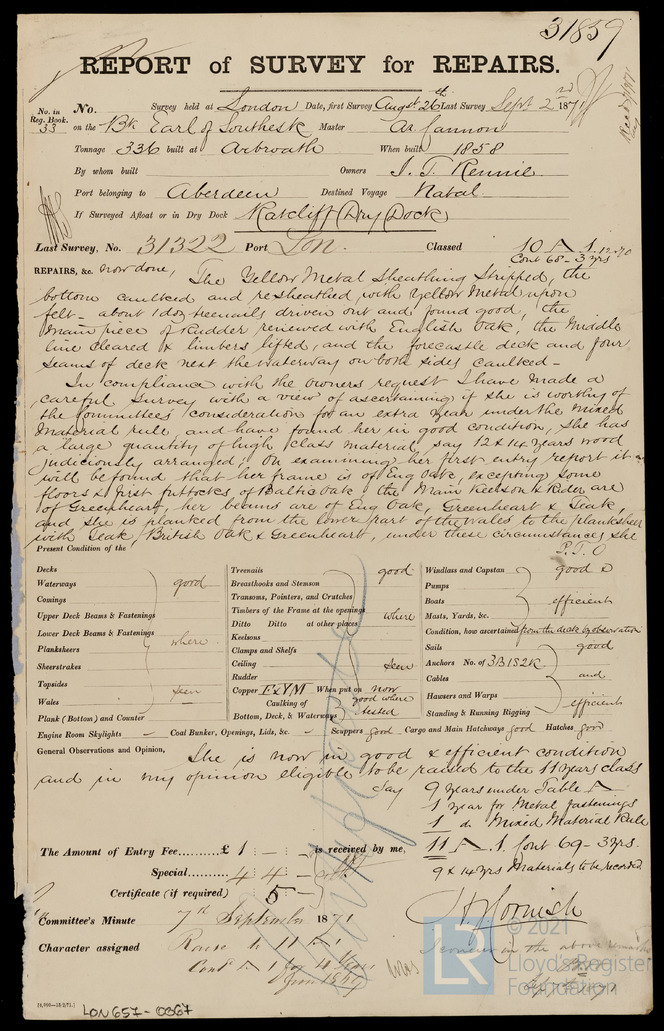 31859
REPORT of SURVEY for REPAIRS.
No. in Reg. Book. 33
No. Survey held at London Date, first Survey Augst 26th Last Survey Septr 2nd 1871
on the Bk Earl of Southesk Master Ar Cannon
Tonnage 336 built at Arbroath When built 1858
By whom built Owners J. T. Rennie
Port belonging to Aberdeen Destined Voyage Natal
If Surveyed Afloat or in Dry Dock Ratcliff (Dry Dock)
Last Survey, No. 31322 Port Lon. Classed 10 A 1. 12.70
Cont 68 - 3 yrs
REPAIRS, &c. now done, The Yellow Metal Sheathing Stripped, the
bottom caulked and resheathed, with Yellow Metal upon
felt - about 1 doz treenails driven out and found good, the
Main piece of Rudder renewed with English Oak, the Middle
line cleared & limbers lifted, and the forecastle deck and four
seams of deck next the waterway on both sides caulked -
In compliance with the owners request I have made a
careful survey with a view of ascertaining if she is worthy of
the Committees' consideration for an extra year under the Mixed
Material rule and have found her in good condition, she has
a large quantity of high class material, say 12 & 14 years wood
judiciously arranged, on examining her first entry report it
will be found that her frame is of Eng Oak, excepting some
floors & first futtocks of Baltic Oak the Main Keelson & Rider are
of Greenheart, her beams are of Eng Oak, Greenheart & Teak,
and she is planked from the lower part of the wales to the planksheer
with Teak, British Oak & Greenheart, under these circumstances, she
P.T.O
Present Condition of the
Decks
Waterways good
Comings
Upper Deck Beams & Fastenings
Lower Deck Beams & Fastenings
Planksheers where
Sheerstrakes
Topsides
Wales seen
Plank (Bottom) and Counter
Treenails good
Breasthooks and Stemson
Transoms, Pointers, and Crutches
Timbers of the Frame at the openings where
Ditto Ditto at other places
Keelsons
Clamps and Shelfs
Ceiling seen
Rudder
Copper F&YM When put on now
Caulking of good where
Bottom, Deck, & Waterways tested
Windlass and Capstan good &
Pumps
Boats efficient
Masts, Yards, &c.
Condition, how ascertained from the deck by observation
Sails good
Anchors No. of 3B1S2K
Cables and
Hawsers and Warps
Standing & Running Rigging efficient
Engine Room Skylights - Coal Bunker, Openings, Lids, &c. - Scuppers good Cargo and Main Hatchways good Hatches good
General Observations and Opinion, She is now in good & efficient condition
and in my opinion eligible to be raised to the 11 years class
say 9 years under Table A
1 year for Metal fastenings
1 do Mixed Material Rule
11 A. 1. Cont 69 - 3 yrs.
9 & 14 yrs Materials to be recorded
The Amount of Entry Fee..........£ 1 : - : - is received by me,
Special.......... 4 : 4 : -
Certificate (if required) : 5 : -
Committee's Minute 7th September 1871
Character assigned
11 A 1
© 2021
LR
Lloyd's Register
Foundation
[6,000—18/2/71.]
LON 657-0367